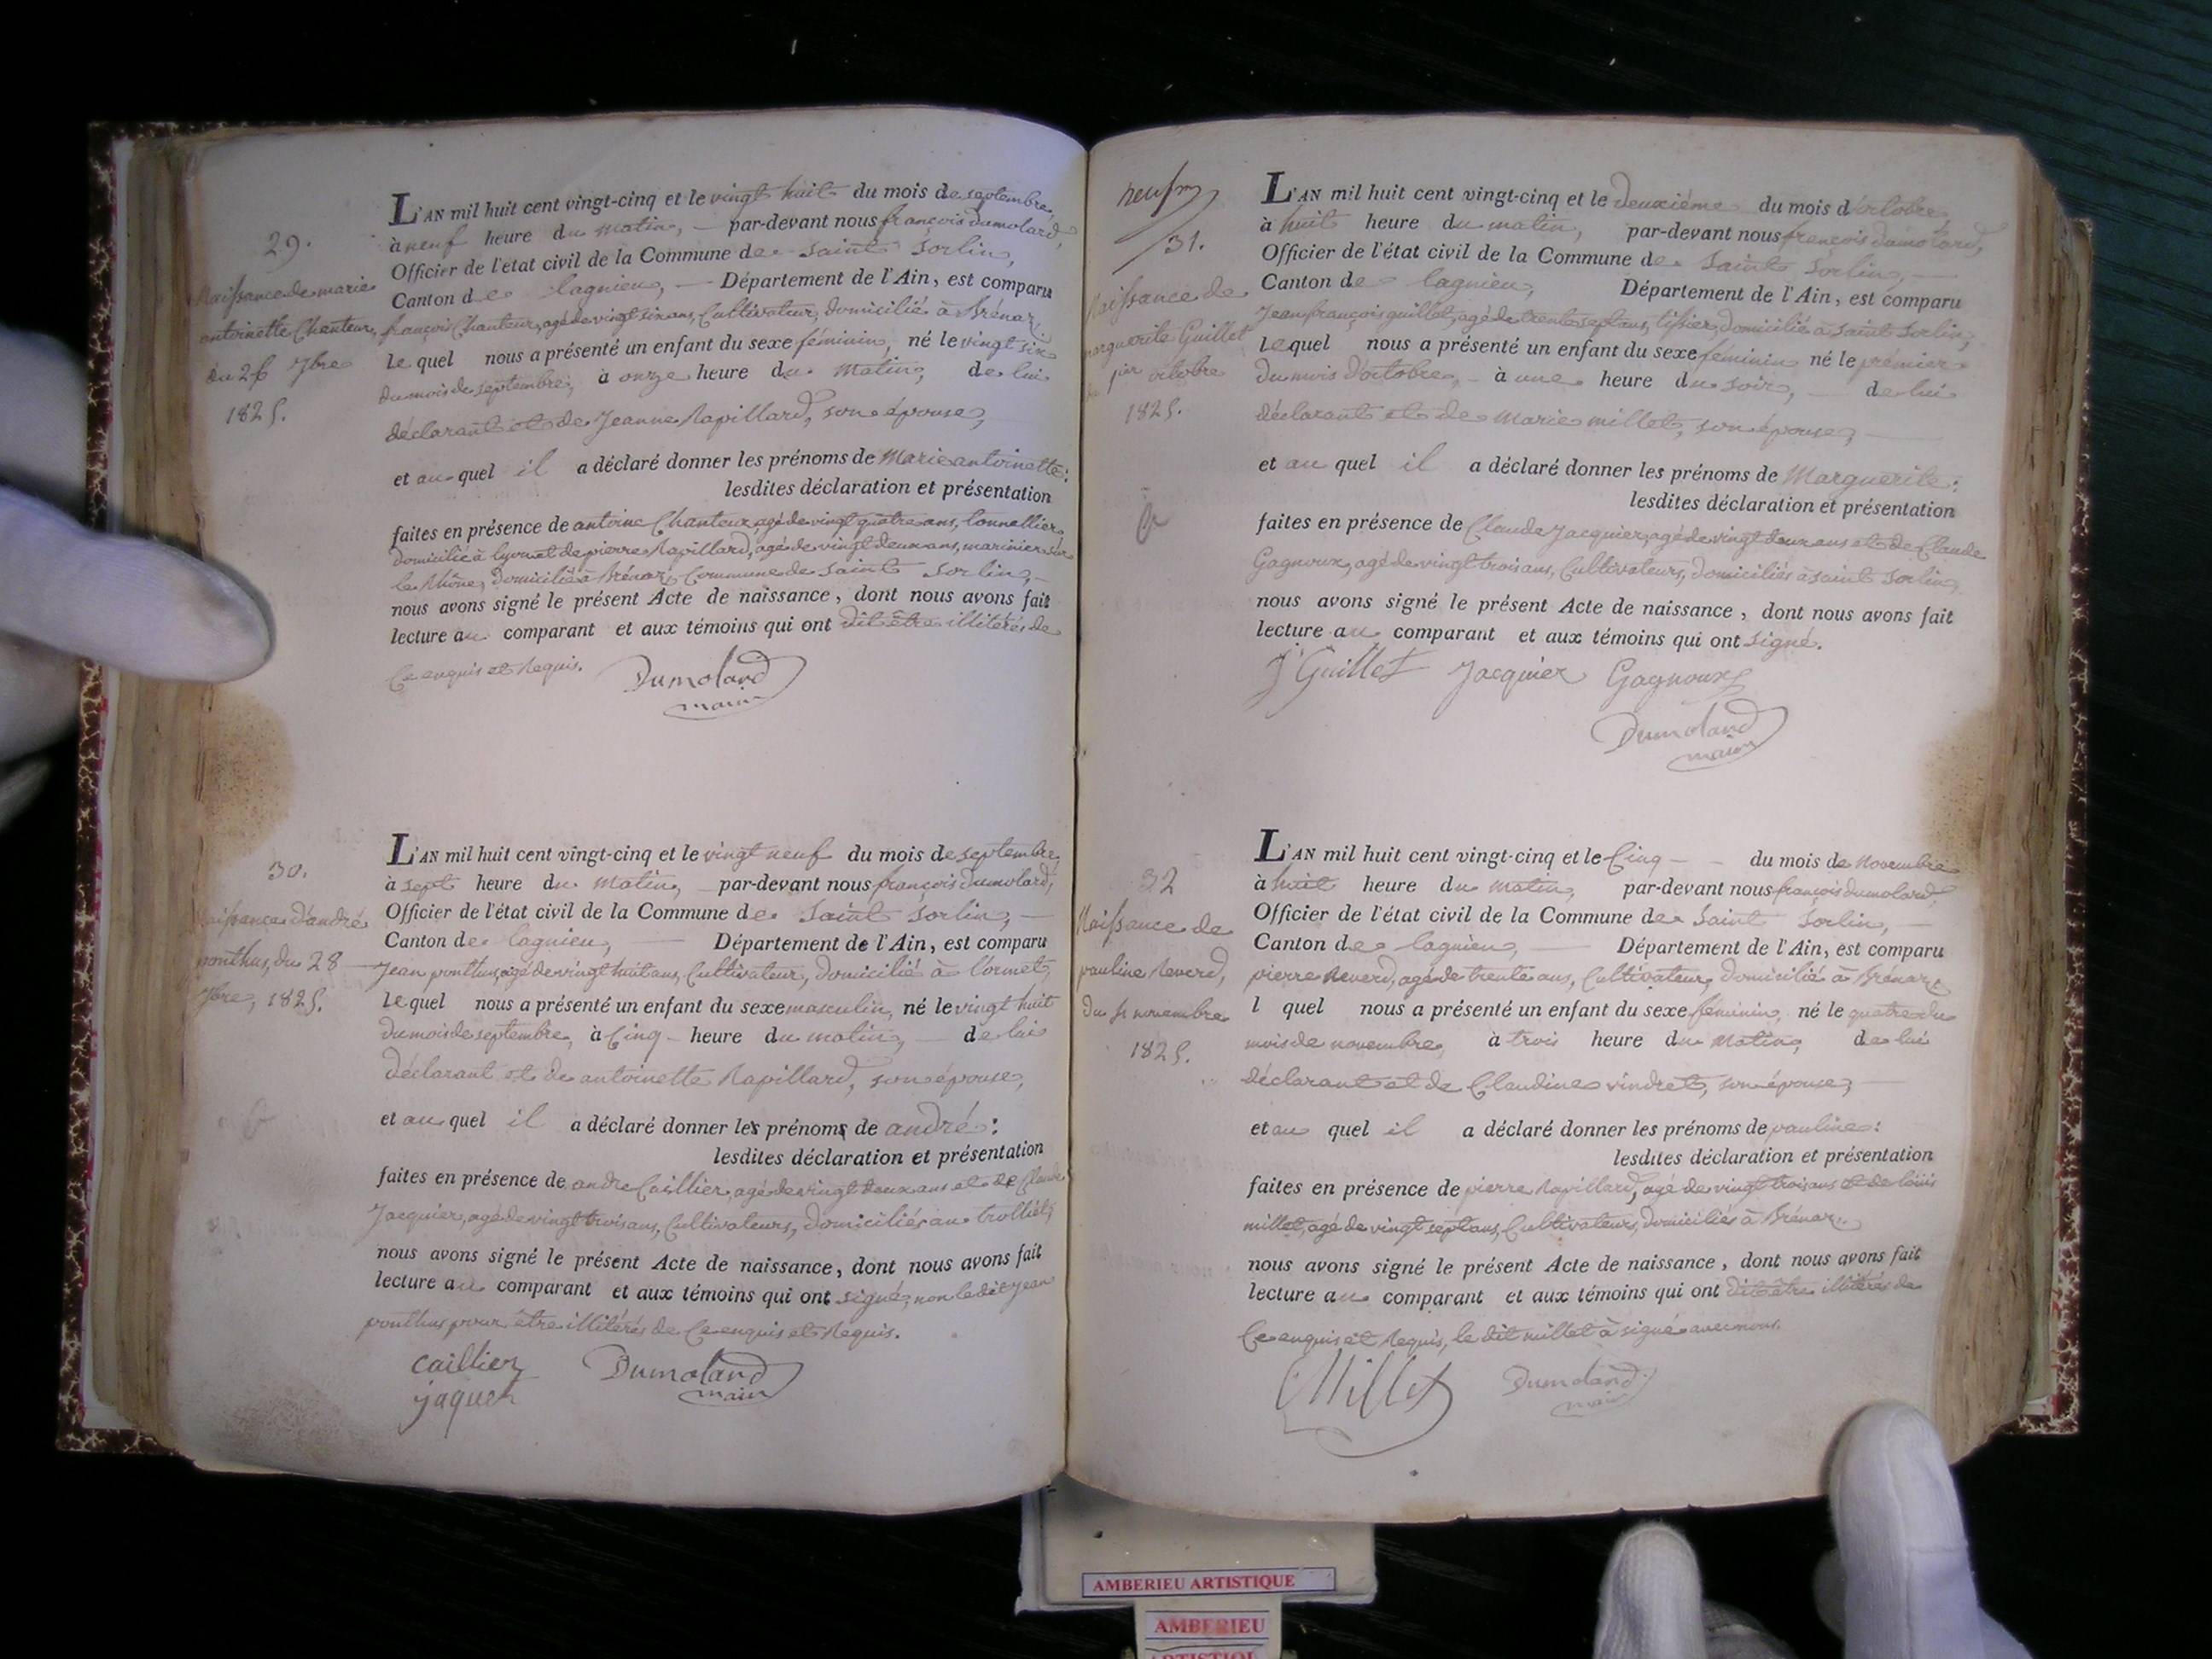 29.
Naissance de marie
antoinette Chanteur,
du 26 7bre
1825.
L'AN mil huit cent vingt-cinq et le vingt huit du mois de septembre,
à neuf heure du matin, par-devant nous françois dumolard,
Officier de l'état civil de la Commune de Saint Sorlin,
Canton de lagnieu, Département de l'Ain, est comparu
françois Chanteur, agé de vingt six ans, Cultivateur, domicilié à Brénaz,
lequel nous a présenté un enfant du sexe féminin, né le vingt six
du mois de septembre, à onze heure du matin, de lui
déclarant et de Jeanne Rapillard, son épouse,
et au-quel il a déclaré donner les prénoms de Marie antoinette:
lesdites déclaration et présentation
faites en présence de antoine Chanteur, agé de vingt quatre ans, tonnellier,
domicilié à lyon et de pierre Rapillard, agé de vingt deux ans, marinier sur
le Rhône, domicilié à Brénaz, Commune de saint Sorlin,
nous avons signé le présent Acte de naissance, dont nous avons fait
lecture au comparant et aux témoins qui ont dit être illitérés de
Ce enquis et Requis.
Dumolard
maire
30.
Naissance d'andré
ponthus, du 28
7bre, 1825.
L'AN mil huit cent vingt-cinq et le vingt neuf du mois de septembre,
à sept heure du matin, par-devant nous françois dumolard,
Officier de l'état civil de la Commune de Saint Sorlin,
Canton de lagnieu, Département de l'Ain, est comparu
Jean ponthus, agé de vingt huit ans, Cultivateur, domicilié à l'ormet,
lequel nous a présenté un enfant du sexe masculin, né le vingt huit
du mois de septembre, à Cinq heure du matin, de lui
déclarant et de antoinette Rapillard, son épouse,
et au quel il a déclaré donner les prénoms de andré:
lesdites déclaration et présentation
faites en présence de andre Caillier, agé de vingt deux ans et de Claude
Jacquier, agé de vingt trois ans, Cultivateurs, domiciliés au trolliet,
nous avons signé le présent Acte de naissance, dont nous avons fait
lecture au comparant et aux témoins qui ont signé, non le dit Jean
ponthus pour être illitérés de Ce enquis et Requis.
caillier Dumolard
maire
31.
Naissance de
marguerite Guillet
du 1er octobre
1825.
L'AN mil huit cent vingt-cinq et le deuxième du mois d'octobre,
à huit heure du matin, par-devant nous françois dumolard,
Officier de l'état civil de la Commune de Saint Sorlin,
Canton de lagnieu, Département de l'Ain, est comparu
Jean françois guillet, agé de trente sept ans, tisier, domicilié à saint Sorlin,
Lequel nous a présenté un enfant du sexe féminin né le prémier
du mois d'octobre, à une heure du soir, de lui
déclarant et de marie millet, son épouse,
et au quel il a déclaré donner les prénoms de Marguerite:
lesdites déclaration et présentation
faites en présence de Claude Jacquier, agé de vingt deux ans et de Claude
Gagnoux, agé de vingt trois ans, Cultivateurs, domiciliés à saint Sorlin,
nous avons signé le présent Acte de naissance, dont nous avons fait
lecture au comparant et aux témoins qui ont signé.
J Guillet Jacquier Gagnoux
Dumolard
maire
32
Naissance de
pauline Reverd,
du 4 novembre
1825.
L'AN mil huit cent vingt-cinq et le Cinq du mois de Novembre
à huit heure du matin, par-devant nous françois dumolard,
Officier de l'état civil de la Commune de Saint Sorlin,
Canton de lagnieu, Département de l'Ain, est comparu
pierre Reverd, agé de trente ans, Cultivateur, domicilié à Brénaz
l quel nous a présenté un enfant du sexe féminin, né le quatre du
mois de novembre, à trois heure du matin, de lui
déclarant et de Claudine vindret, son épouse,
et au quel il a déclaré donner les prénoms de pauline:
lesdites déclaration et présentation
faites en présence de pierre Rapillard, agé de vingt trois ans et de loüis
millet, agé de vingt sept ans, Cultivateurs, domiciliés à Brénaz.
nous avons signé le présent Acte de naissance, dont nous avons fait
lecture au comparant et aux témoins qui ont dit être illitérés de
Ce enquis et Requis, le dit millet à signé avec nous.
Millet Dumolard
maire
AMBERIEU ARTISTIQUE
AMBERIEU
ARTISTIQUE